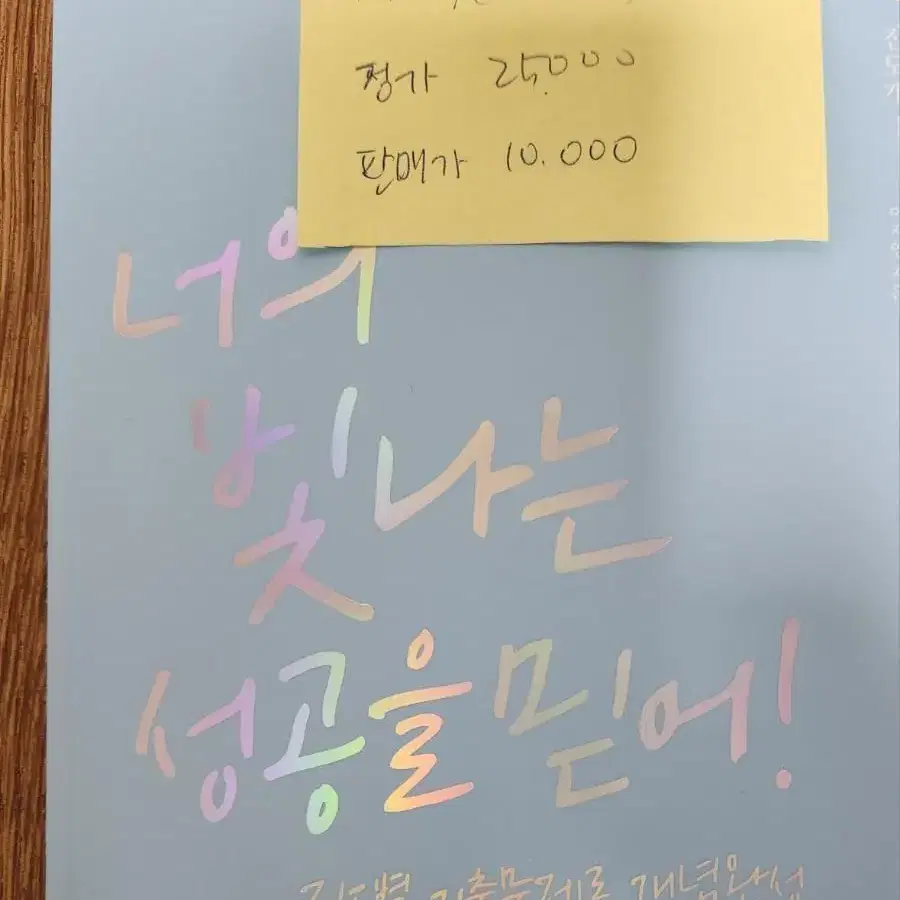 정가 25,000
판매가 10.000
너의
빛나는
성공을 믿어!
기출문제로 개념완성